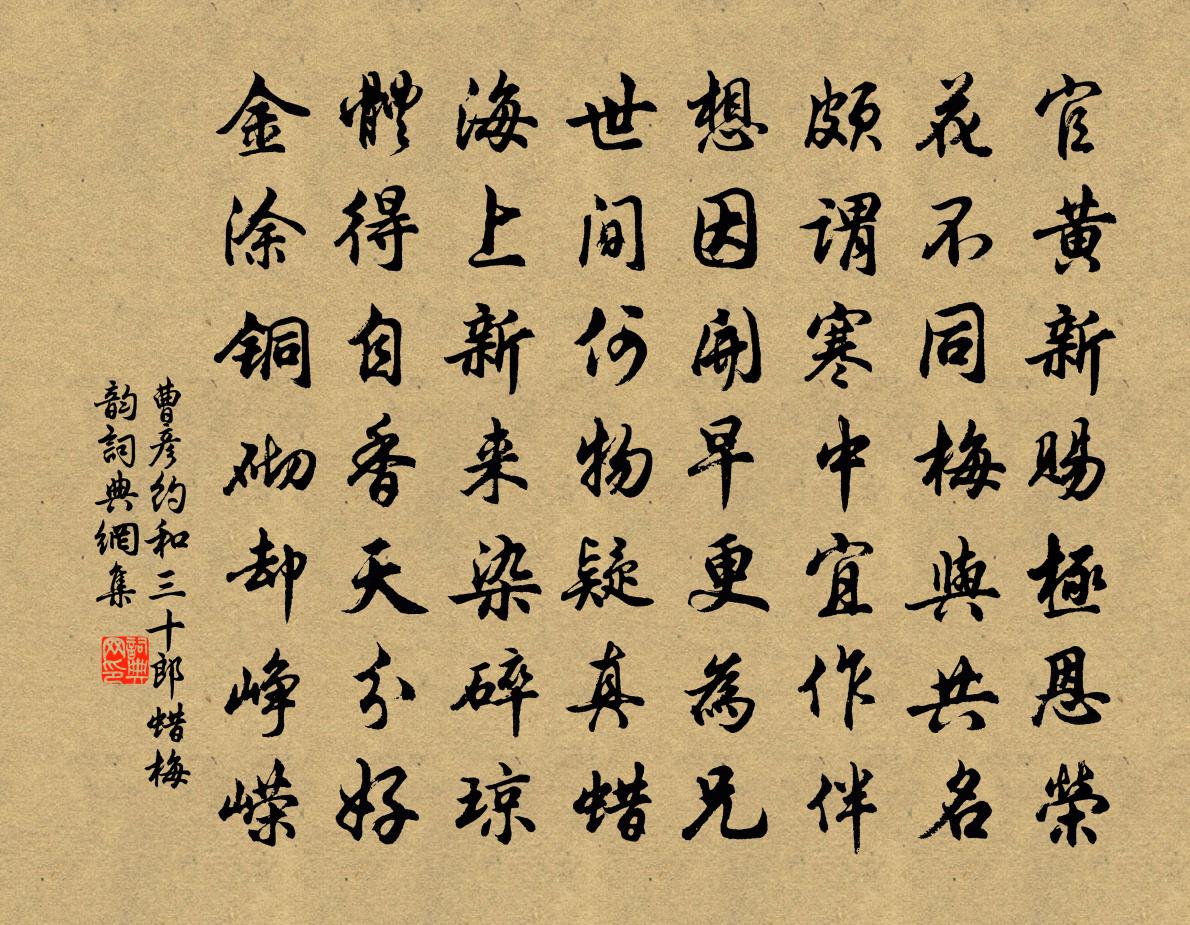 官黄新賜極恩榮
花不同梅與共名
頗謂寒中宜作伴
想因開早更為兄
世間何物疑真蜡
海上新来染碎琼
體得自香天分好
金涂铜砌却峥嵘
曹彦约和三十郎蜡梅
韵詞典網集
詞典网印